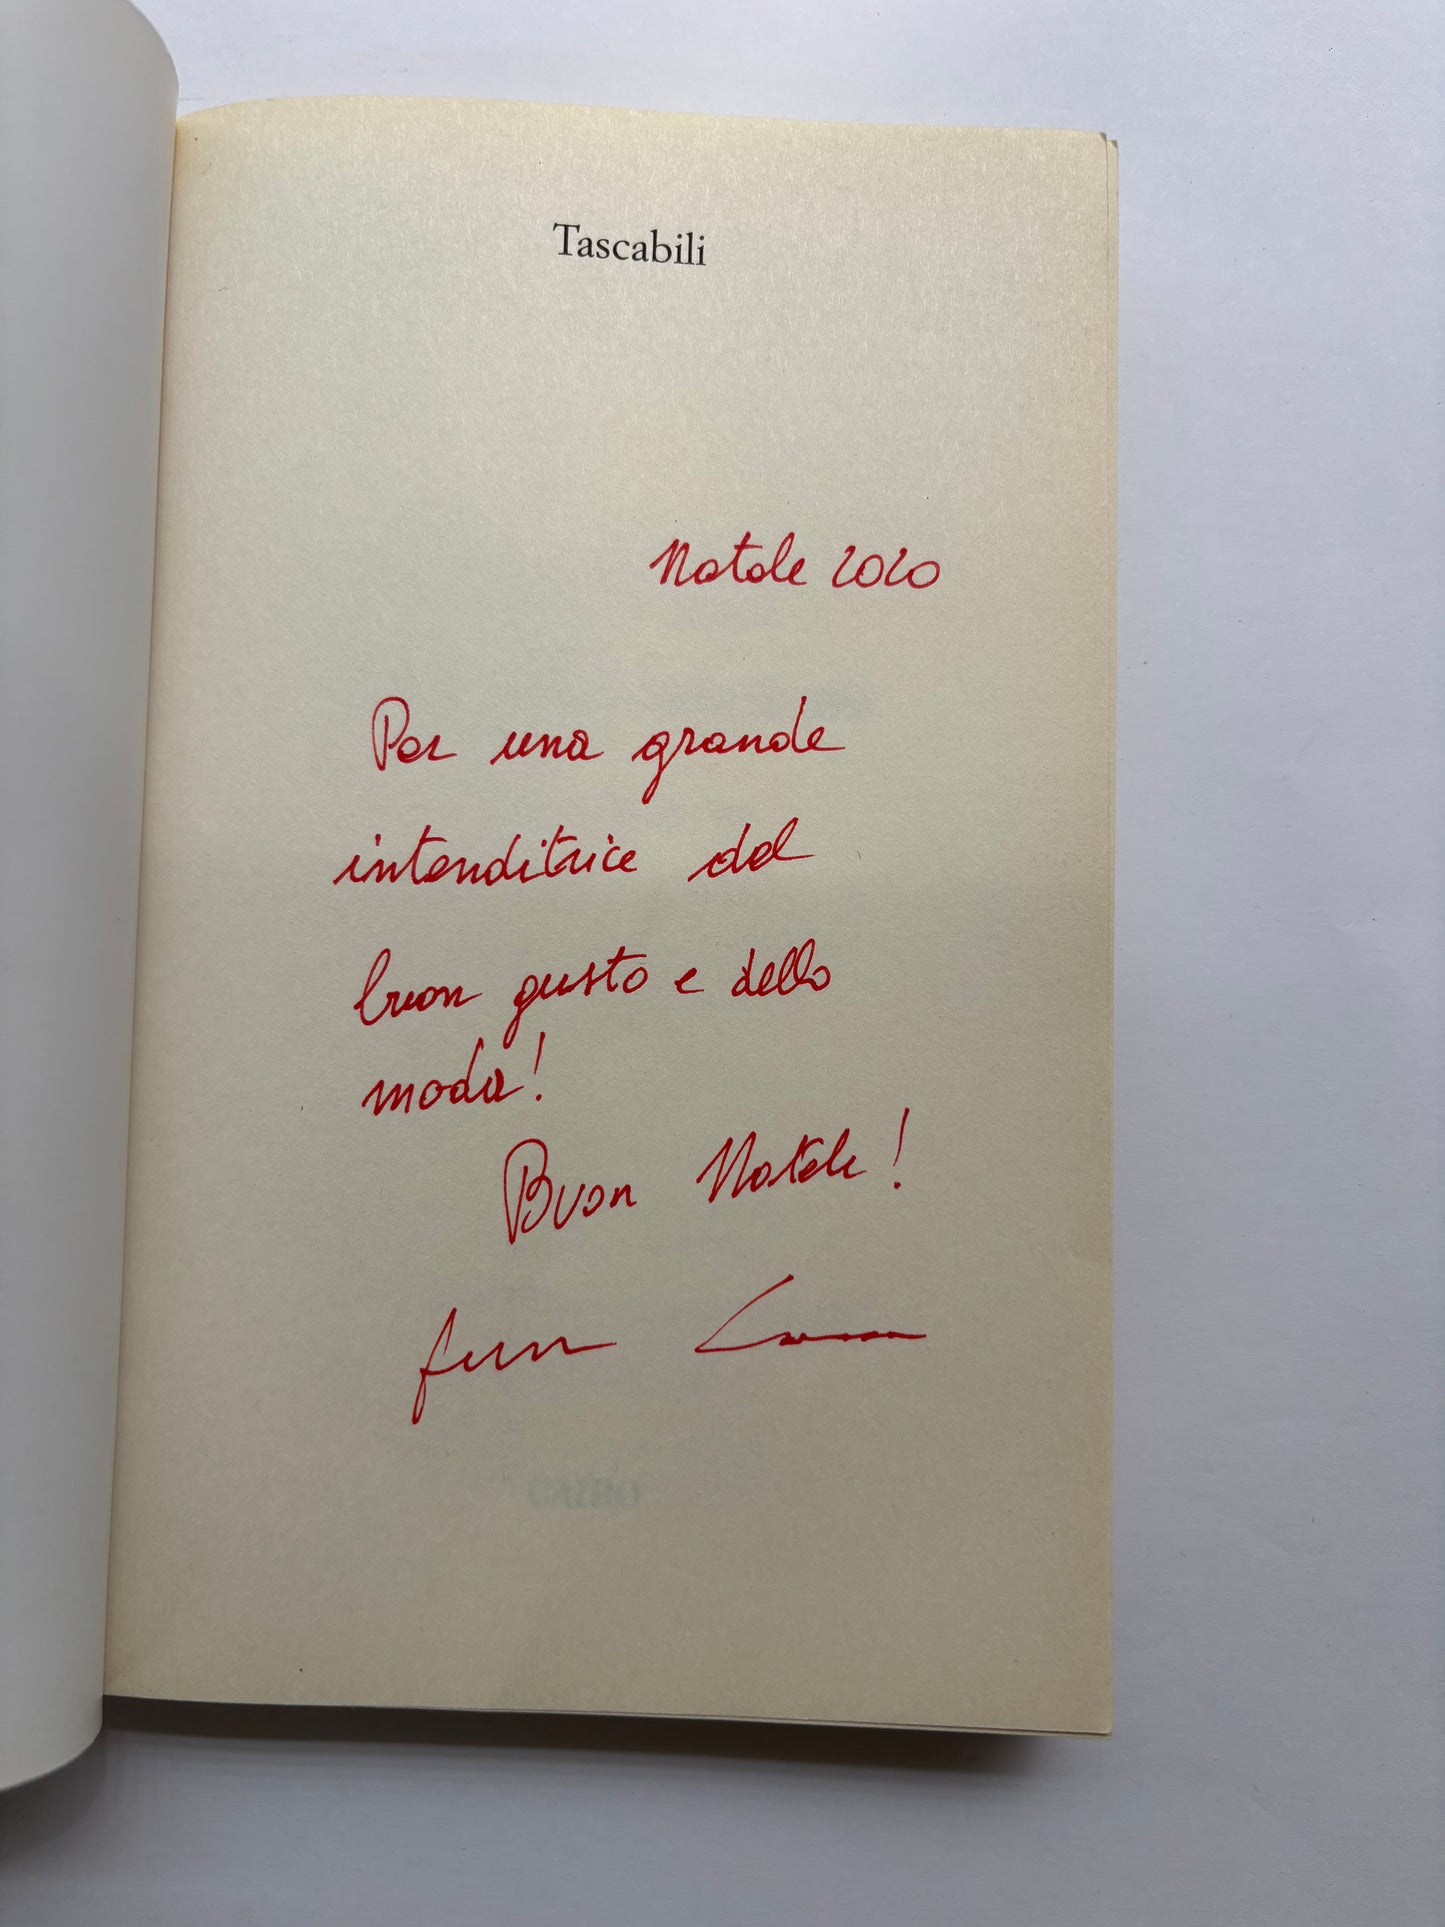 Tascabili
Natale 2020
Per una grande
intenditrice del
buon gusto e dello
moda!
Buon Natale!
CAIRO